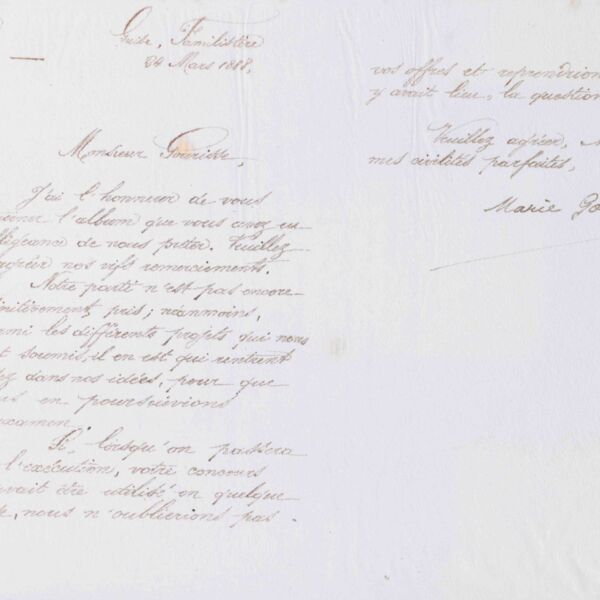 Guise, Familistère
24 Mars 1888,
Monsieur
J'ai l'honneur de vous
l'album que vous avez eu
de nous prêter. Veuillez
nos vifs remerciements.
Notre parti n'est pas encore
pris; néanmoins,
les différents projets qui nous
soumis, il en est qui rentrent
dans nos idées, pour que
en poursuivions
Si, lorsqu'on passera
l'exécution, votre concours
être utilisé en quelque
nous n'oublierions pas
vos offres et reprendrion
y avait lieu, la question
Veuillez agréer,
mes civilités parfaites,
Marie